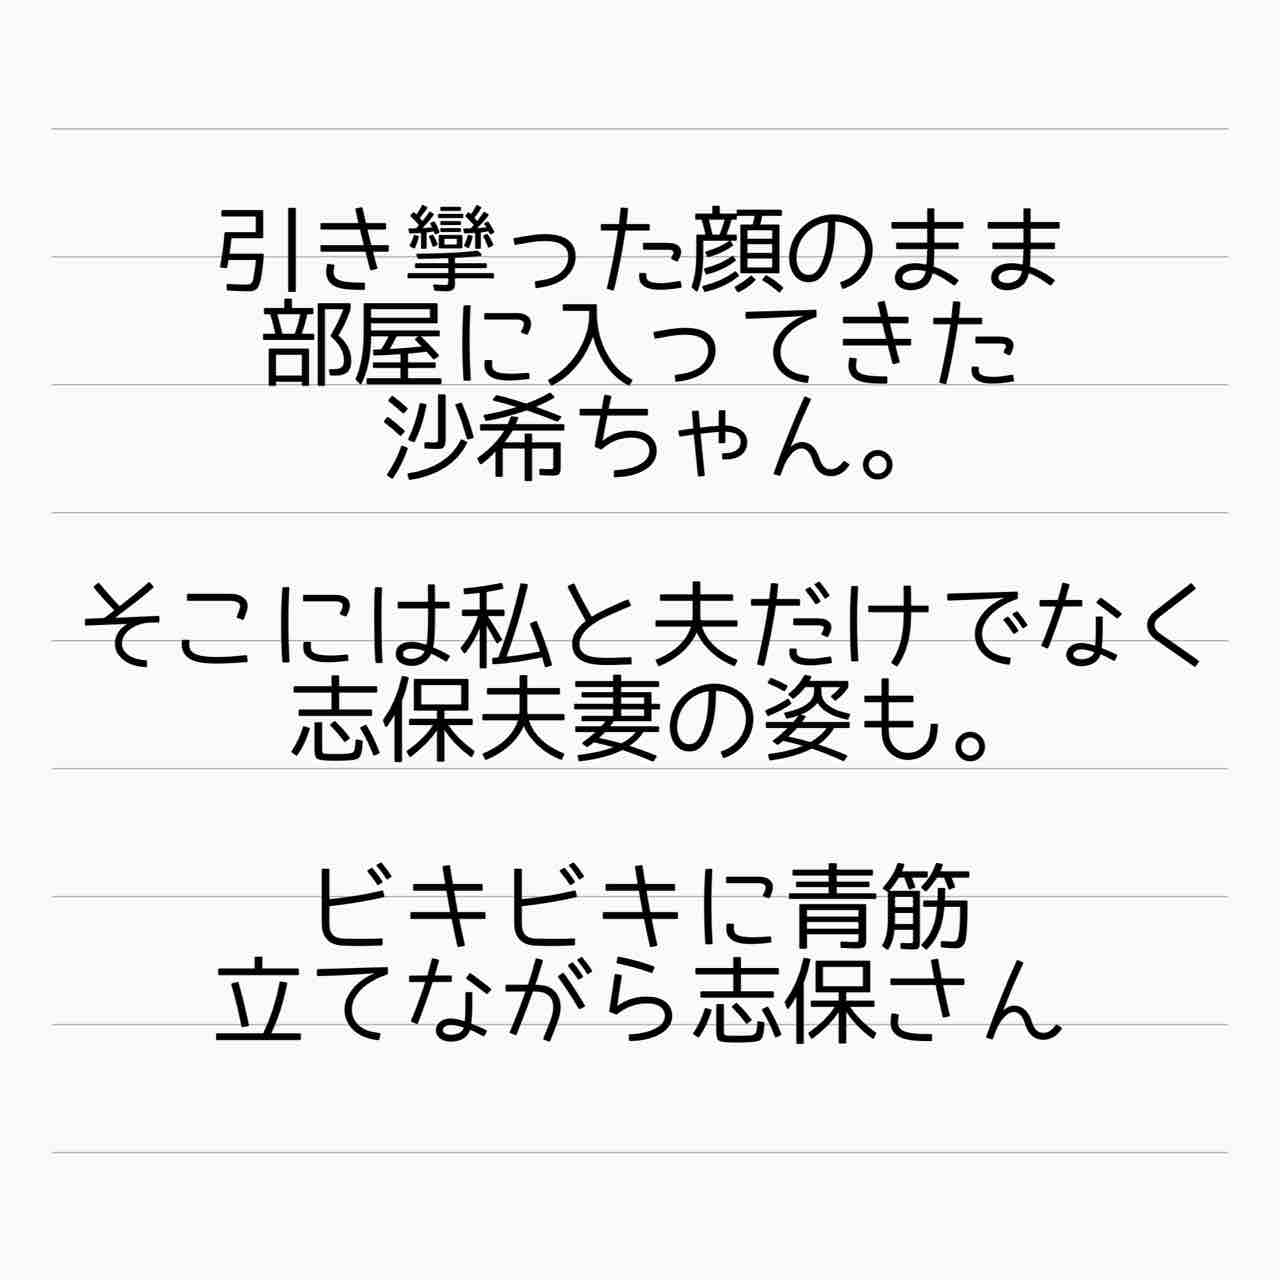 引き攣った顔のまま
部屋に入ってきた
沙希ちゃん。
そこには私と夫だけでなく
志保夫妻の姿も。
ビキビキに青筋
立てながら志保さん